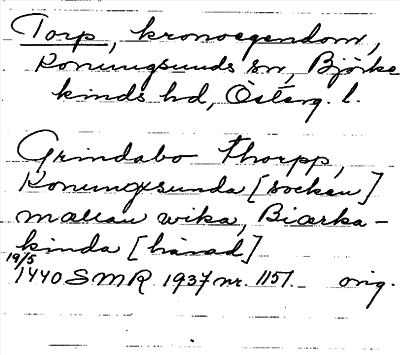 Torp, kronoegendom,
Konungsunds sn, Björke
kinds hd, Österg. l.
Grindabo thorpp,
Konungxsunda [socken]
mællan wika, Biærka-
kinda [härad]
19/5
1440 SMR 1937 nr. 1151. orig.